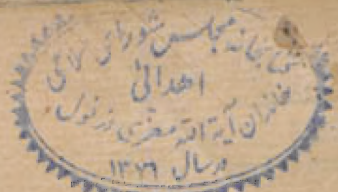 کتابخانه مجلس شورای اسلامی
اهدائی
خاندان آیة الله معزی دزفول
در سال ۱۳۷۶